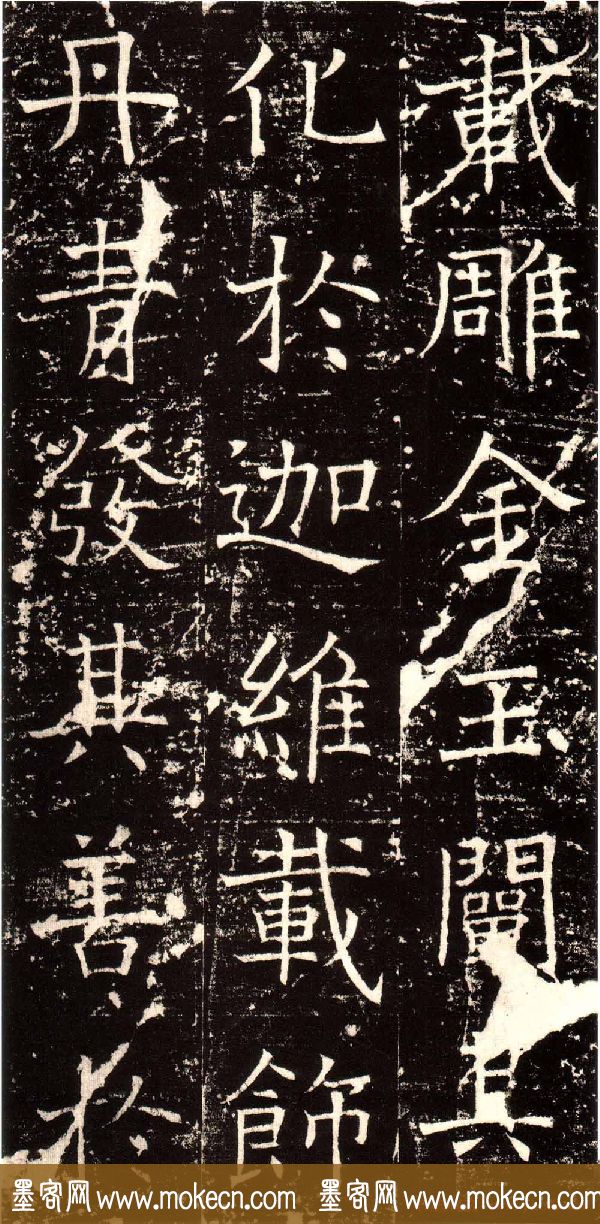 載雕金玉闡其
化於迦維載飾
丹青發其善於
墨客网 www.mokecn.com 墨客网 www.mokecn.com